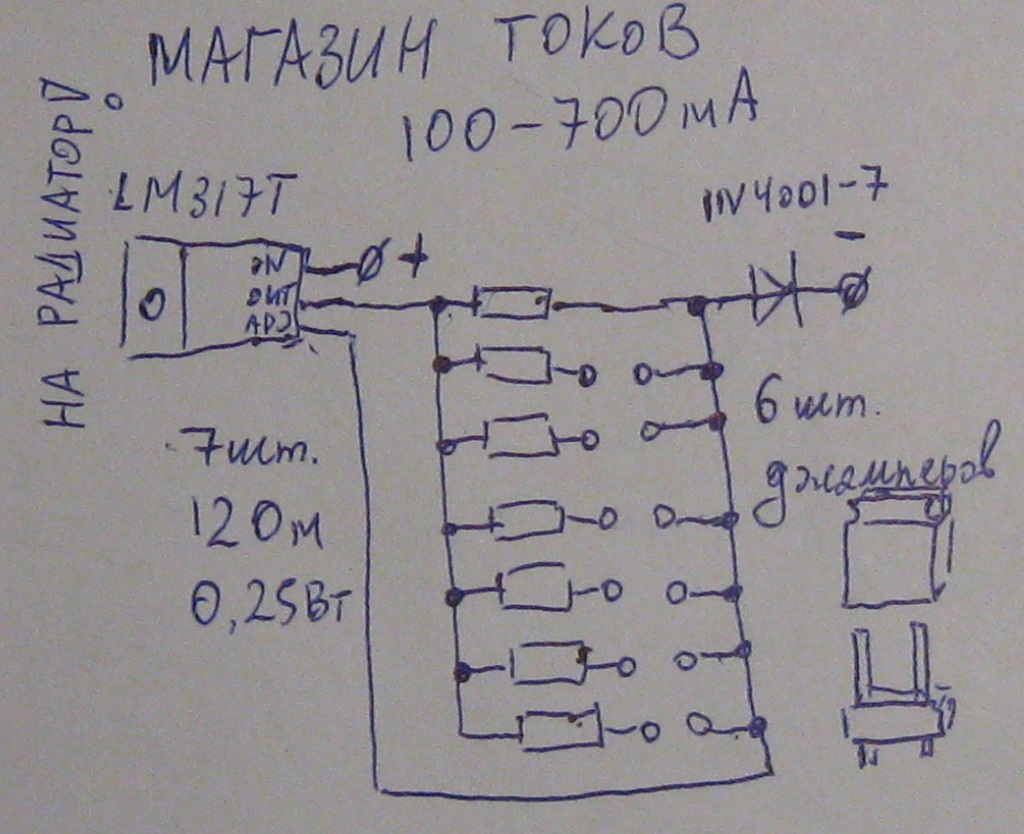 МАГАЗИН ТОКОВ
100-700мА
НА РАДИАТОР!
LM317T
IN
OUT
ADJ
+
1N4001-7
-
7шт.
12Ом
0,25Вт
6 шт.
джамперов